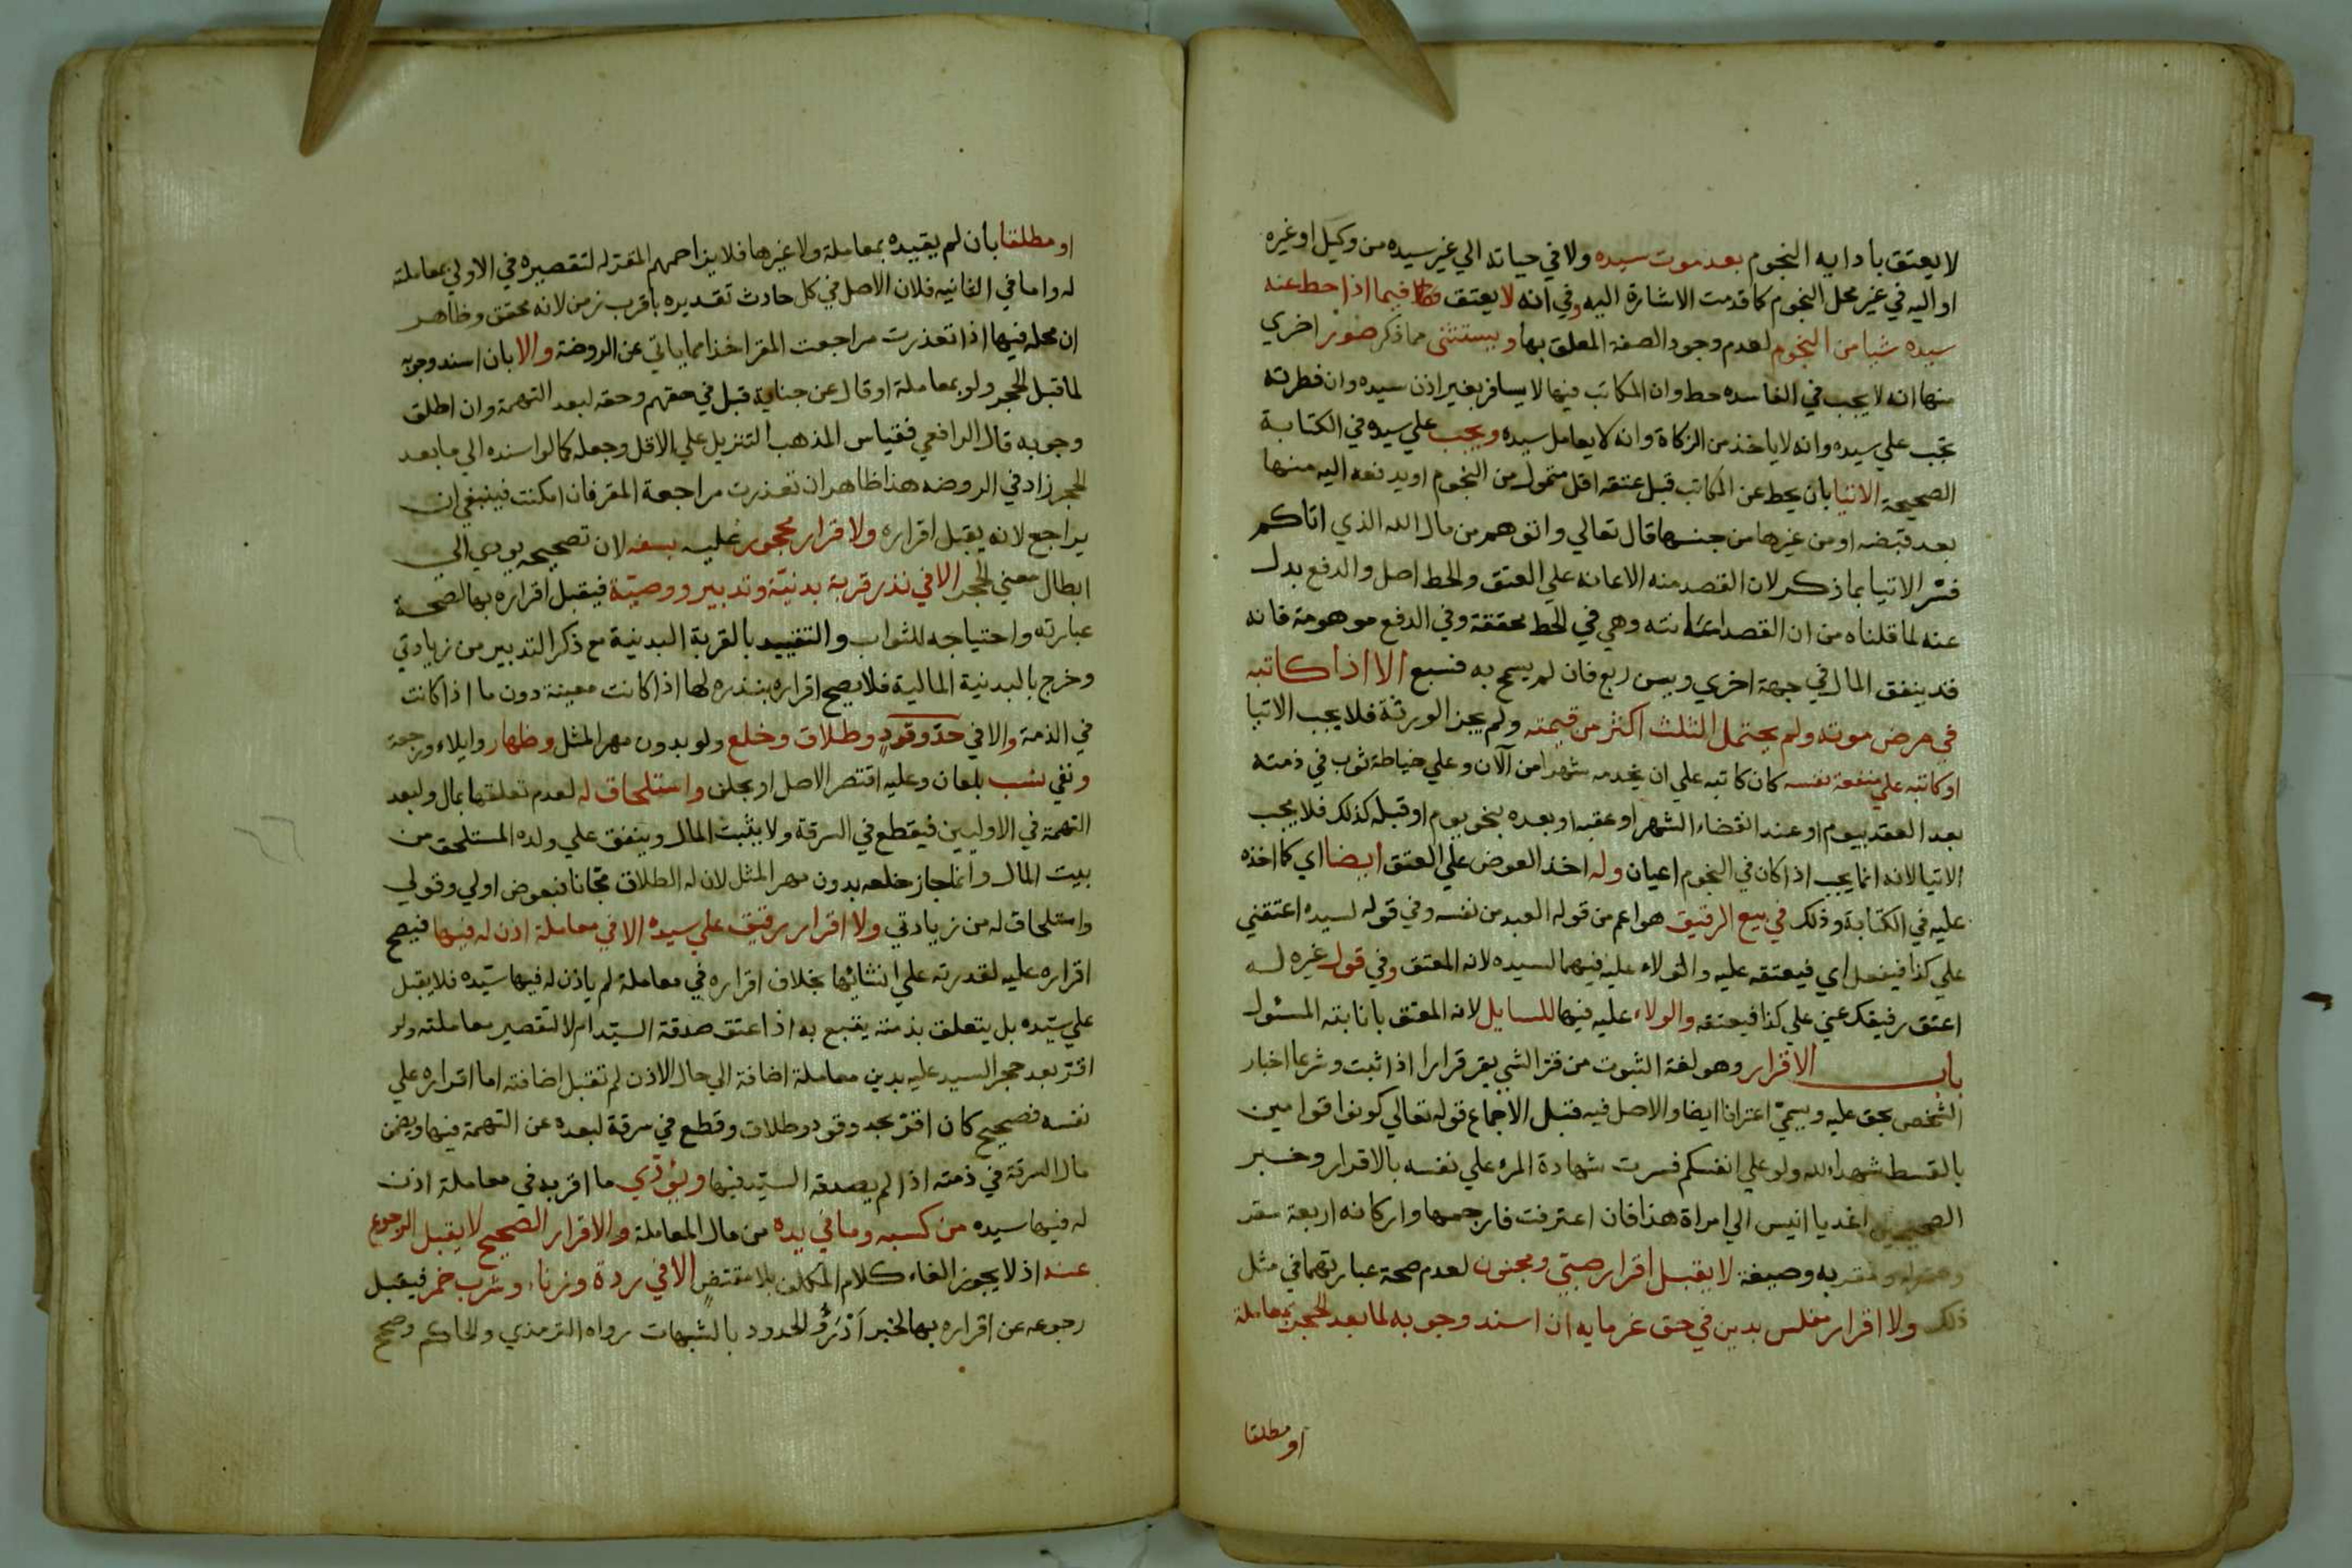 لا يعتق بادايه النجوم بعد موت سيده ولا في حياته الي غير سيده من وكيل او غيره
او اليه في غير محل النجوم كما قدمت الاشارة اليه وفي انه لا يعتق فيما اذا حط عنه
سيده شيا من النجوم لعدم وجود الصفة المعلق بها ويستثنى مما ذكر صور اخري
منها انه لا يجب في الفاسده حط وان المكاتب فيها لا يسافر بغير اذن سيده وان فطرته
تجب علي سيده وانه لا ياخذ من الزكاة وانه لا يعامل سيده ويجب علي سيده في الكتابة
الصحيحة الاتيا بان يحط عن المكاتب قبل عتقه اقل متمول من النجوم او يدفعه اليه منها
بعد قبضه او من غيرها من جنسها قال تعالي واتوهم من مال الله الذي اتاكم
فسّر الاتيا بما ذكر لان القصد منه الاعانه علي العتق والحط اصل والدفع بدل
عنه لما قلناه من ان القصد اعانته وهي في الحط محققة وفي الدفع موهومة فانه
قد ينفق المال في جهة اخري ويسن ربع فان لم يسمح به فسبع الا اذا كاتبه
في مرض موته ولم يحتمل الثلث اكثر من قيمته ولم يجز الورثة فلا يجب الاتيا
او كاتبه علي منفعة نفسه كان كاتبه علي ان يخدمه شهرا من آلان وعلي خياطة ثوب في ذمته
بعد العقد بيوم او عند انقضاء الشهر او عقبه او بعده بنحو يوم او قبله كذلك فلا يجب
الاتيا لانه انما يجب اذا كان في النجوم اعيان وله اخذ العوض علي العتق ايضا اي كما اخذه
عليه في الكتابة وذلك في بيع الرقيق هو اعم من قوله العبد من نفسه وفي قوله لسيده اعتقني
علي كذا فيفعل اي فيعتقه عليه والولاء عليه فيهما لسيده لانه المعتق وفي قول غيره له
اعتق رقيقك عني علي كذا فيعتقه والولاء عليه فيها للسايل لانه المعتق بانابته المسئول
باب الاقرار وهو لغة الثبوت من قرّ الشي يقر قرارا اذا ثبت وشرعا اخبار
الشخص بحق عليه ويسميّ اعترافا ايضا والاصل فيه قبل الاجماع قوله تعالي كونوا قوامين
بالقسط شهداء لله ولو علي انفسكم فسرت شهادة المرء علي نفسه بالاقرار وخبر
الصحيحين اغد يا انيس الي امراة هذا فان اعترفت فارجمها واركانه اربعة مقر
ومقر له ومقر به وصيغة لا يقبل اقرار صبيّ ومجنون لعدم صحة عبارتهما في مثل
ذلك ولا اقرار مفلس بدين في حق غرمايه ان اسند وجوبه لما بعد الحجر بمعاملة
او مطلقا
او مطلقا بان لم يقيده بمعاملة ولا غيرها فلا يزاحمهم المقر له لتقصيره في الاولي بمعاملته
له واما في الثانيه فلان الاصل في كل حادث تقديره باقرب زمن لانه محقق وظاهر
ان محله فيها اذا تعذرت مراجعت المقر اخذا مما ياتي عن الروضة والا بان اسند وجوبه
لما قبل الحجر ولو بمعاملة او قال عن جناية قبل في حقهم وحقه لبعد التهمة وان اطلق
وجوبه قال الرافعي فقياس المذهب التنزيل علي الاقل وجعله كما لو اسنده الي ما بعد
الحجر زاد في الروضه هذا ظاهر ان تعذرت مراجعة المقر فان امكنت فينبغي ان
يراجع لانه يقبل اقراره ولا اقرار محجور عليه بسفه لان تصحيحه يودي الي
ابطال معني الحجر الا في نذر قربة بدنيّة وتدبير ووصيّة فيقبل اقراره بها لصحة
عبارته واحتياجه للثواب والتقييد بالقربة البدنية مع ذكر التدبير من زيادتي
وخرج بالبدنية المالية فلا يصح اقراره بنذره لها اذا كانت معينة دون ما اذا كانت
في الذمة والا في حدّ وقودٍ وطلاق وخلع ولو بدون مهر المثل وظهار وايلاء ورجعة
ونفي نسب بلعان وعليه اقتصر الاصل او بحلف واستلحاق له لعدم تعلقها بمال ولبعد
التهمة في الاوليين فيقطع في السرقة ولا يثبت المال وينفق علي ولده المستلحق من
بيت المال وانما جاز خلعه بدون مهر المثل لان له الطلاق مجّانا فبعوض اولي وقولي
واستلحاق له من زيادتي ولا اقرار رقيق علي سيده الا في معاملة اذن له فيها فيصح
اقراره عليه لقدرته علي انشائها بخلاف اقراره في معاملة لم ياذن له فيها سيّده فلا يقبل
علي سيّده بل يتعلق بذمته يتبع به اذا عتق صدقة السيّد ام لا لتقصير معاملته ولو
اقرّ بعد حجر السيد عليه بدين معاملة اضافة الي حال الاذن لم تقبل اضافته اما اقراره علي
نفسه فصحيح كان اقرّ بحد وقود وطلاق وقطع في سرقة لبعده عن التهمة فيها ويضمن
مال السرقة في ذمته اذا لم يصدقه السيّد فيها ويؤدّي ما اقر به في معاملة اذن
له فيها سيده من كسبه وما في يده من مال المعاملة والاقرار الصحيح لا يقبل الرجوع
عنه اذ لا يجوز الغاء كلام المكلف بلا مقتضٍ الا في ردة وزناء وشرب خمر فيقبل
رجوعه عن اقراره بها لخبر اَدْرَؤُ الحدود بالشبهات رواه الترمذي والحاكم وصحح